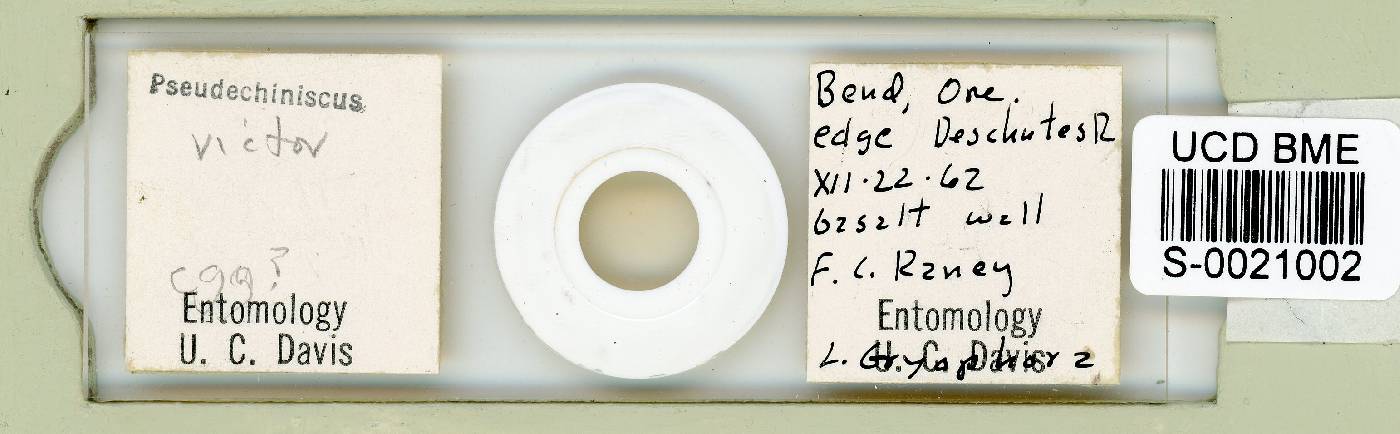 Pseudechiniscus
victor
egg?
Entomology
U. C. Davis
Bend, Ore.
edge Deschutes R
XII·22·62
basalt wall
F. C. Raney
Entomology
U. C. Davis
L.
UCD BME
S-0021002